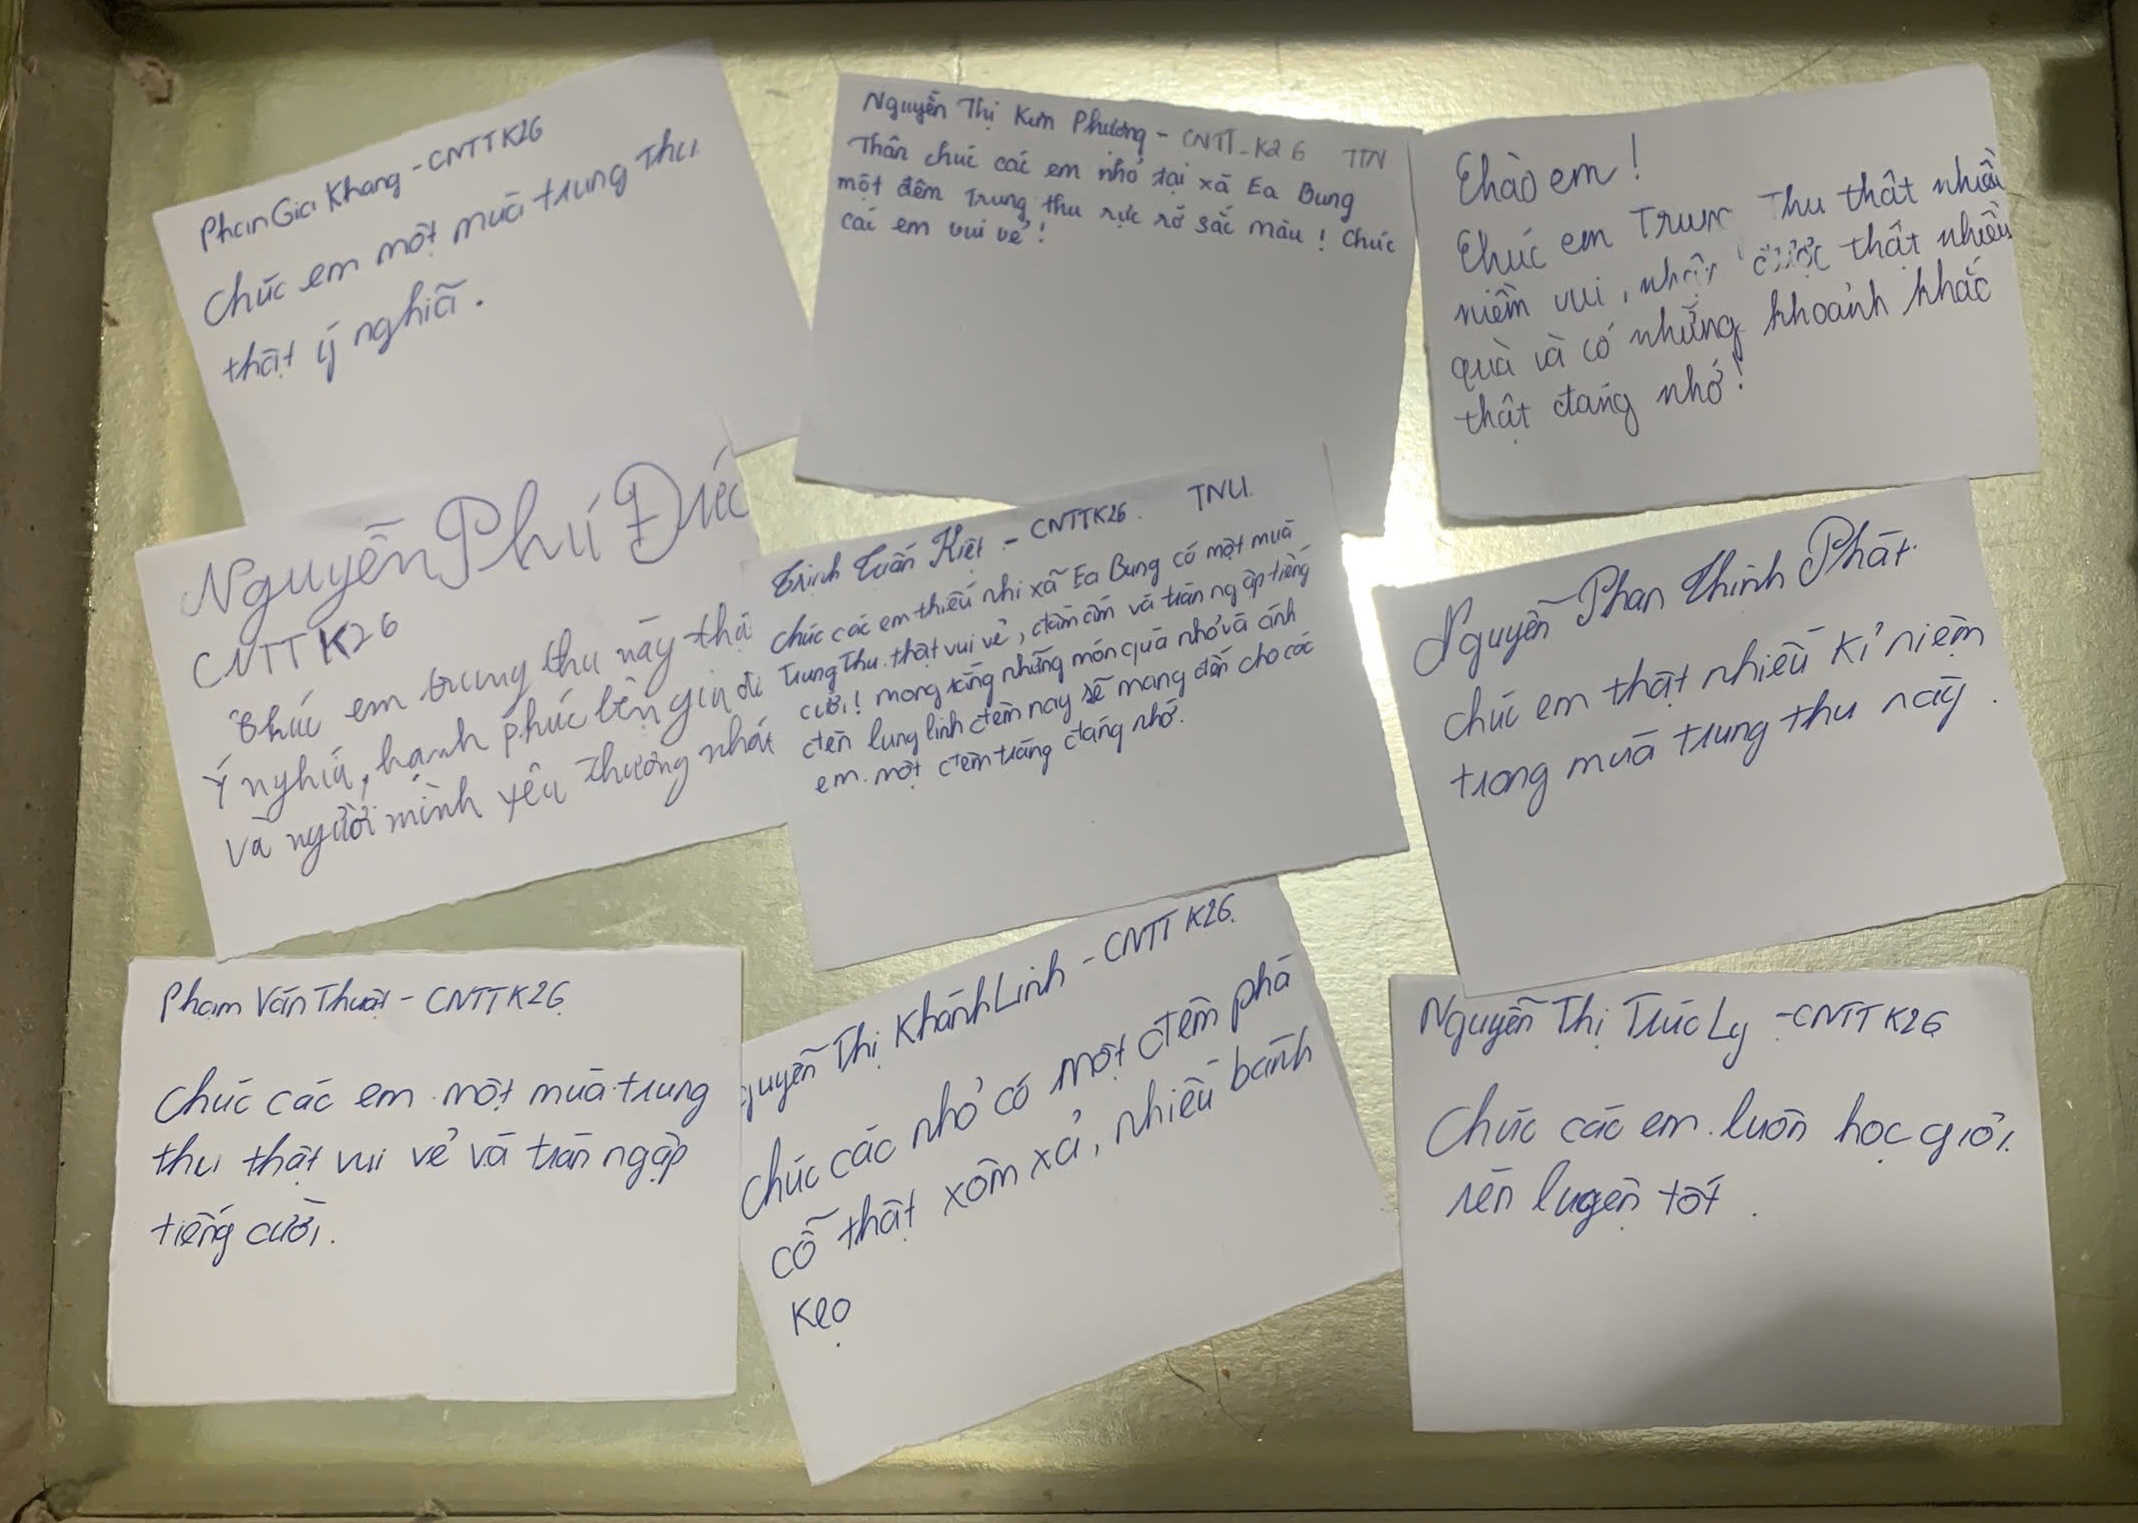 Phan Gia Khang - CNTTK26
Chúc em một mùa trung thu
thật ý nghĩa.
Nguyễn Thị Kim Phương - CNTT-K26 TTN
Thân chúc các em nhỏ tại xã Ea Bung
một đêm Trung thu rực rỡ sắc màu! Chúc
các em vui vẻ!
Chào em!
Chúc em Trun Thu thật nhiều
niềm vui, nhận được thật nhiều
quà và có những khoảnh khắc
thật đáng nhớ!
Nguyễn Phú Đức
CNTT K26
Chúc em trung thu này thậ
ý nghĩa, hạnh phúc bên gia đì
và người mình yêu thương nhất
Trịnh Tuấn Kiệt - CNTTK26. TNU.
Chúc các em thiếu nhi xã Ea Bung có một mùa
Trung Thu thật vui vẻ, đầm ấm và tràn ngập tiếng
cười! mong rằng những món quà nhỏ và ánh
đèn lung linh đêm nay sẽ mang đến cho các
em một đêm trăng đáng nhớ.
Nguyễn Phan Thịnh Phát
chúc em thật nhiều kỉ niệm
trong mùa trung thu này.
Phạm Văn Thuật - CNTTK26
Chúc các em một mùa trung
thu thật vui vẻ và tràn ngập
tiếng cười.
guyễn Thị Khánh Linh - CNTT K26.
Chúc các nhỏ có một đêm phá
cỗ thật xôm xả, nhiều bánh
kẹo
Nguyễn Thị Trúc Ly - CNTT K26
Chúc các em luôn học giỏi.
rèn luyện tốt.